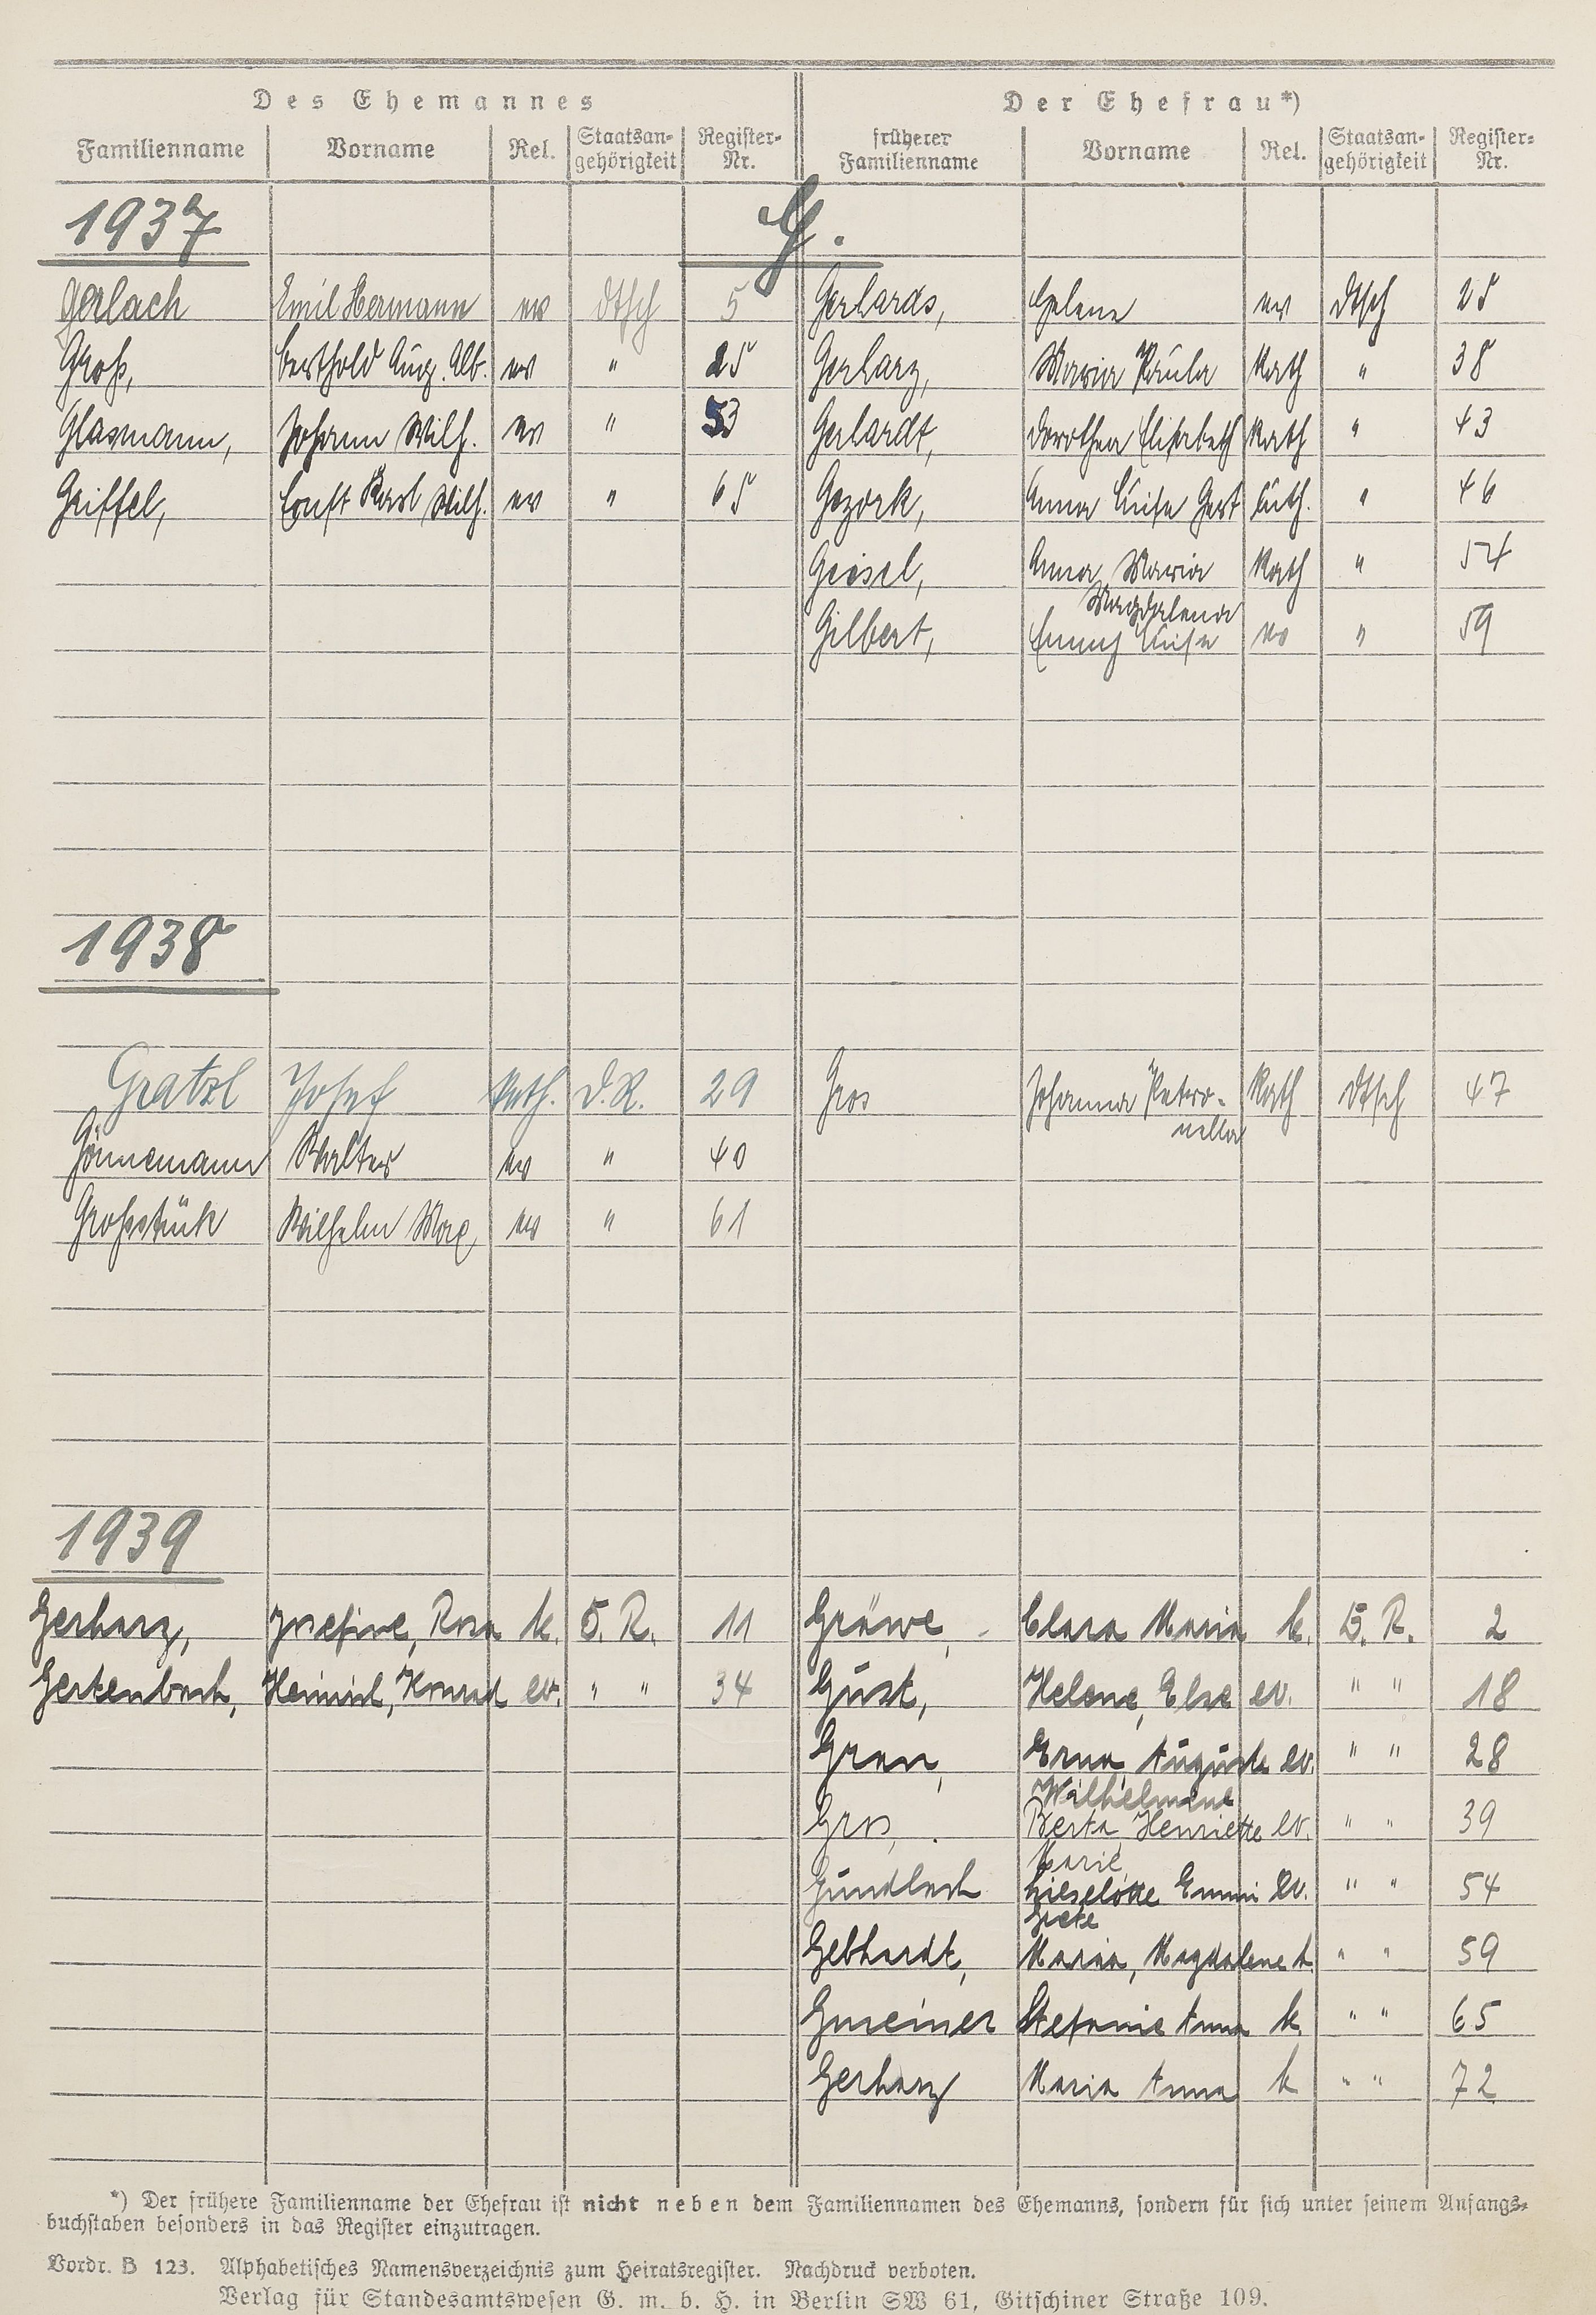 Des Ehemannes Der Ehefrau*)
Familienname Vorname Rel. Staatsan-gehörigkeit Register-Nr. früherer Familienname Vorname Rel. Staatsan-gehörigkeit Register-Nr.
1937 G.
Gerlach Emil Hermann ev dtsch 5 Gerhards, Helene ev dtsch 25
Groß, Berthold Aug. Alb. ev " 25 Gerharz, Maria Paula Kath " 38
Glasmann, Johann Wilh. ev " 53 Gerhardt, Dorothea Elisabeth Kath " 43
Griffel, Ernst Karl Wilh. ev " 65 Gezork, Anna Luise Gert luth. " 46
Giesel, Anna Maria Kath " 54
Magdalena
Gilbert, Emmy Luise ev " 59
1938
Gratzl Josef Kath. D.R. 29 Gros Johanna Petro- Kath dtsch 47
nella
Gönnemann Walter ev " 40
Großstück Wilhelm Max ev " 61
1939
Gerharz, Josefine, Rosa k. D. R. 11 Gräwe, Clara Maria k. D. R. 2
Gertenbach, Heinrich, Konrad ev. " " 34 Gust, Helene, Else ev. " " 18
Gran, Erna, Auguste ev. " " 28
Wilhelmine
Gros, Berta, Henriette ev. " " 39
Marie
Gundlach Lieselotte Emmi ev. " " 54
Grete
Gebhardt, Maria, Magdalene k. " " 59
Gmeiner Stefanie Anna k. " " 65
Gerharz Maria Anna k " " 72
*) Der frühere Familienname der Ehefrau ist nicht neben dem Familiennamen des Ehemanns, sondern für sich unter seinem Anfangs-
buchstaben besonders in das Register einzutragen.
Vordr. B 123. Alphabetisches Namensverzeichnis zum Heiratsregister. Nachdruck verboten.
Verlag für Standesamtswesen G. m. b. H. in Berlin SW 61, Gitschiner Straße 109.